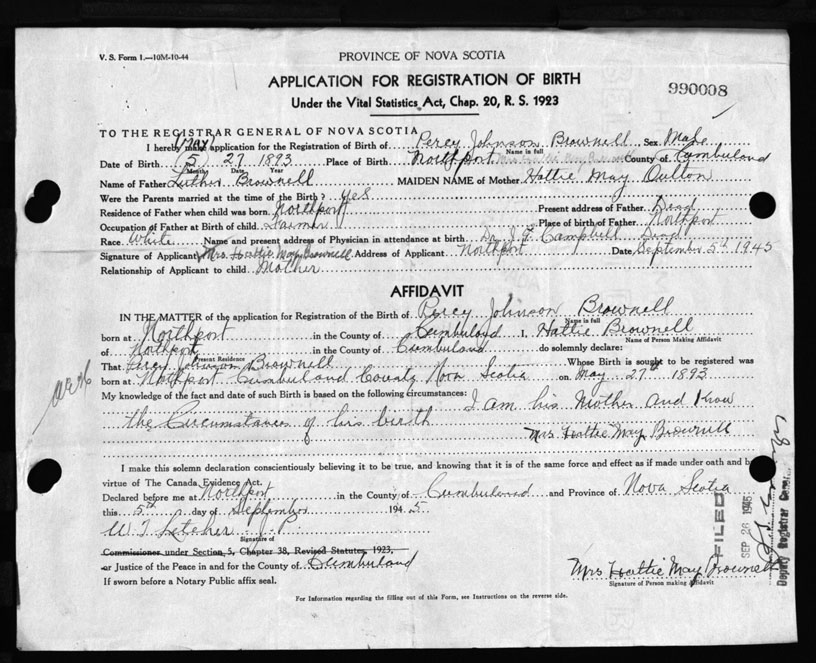 V. S. Form 1.—10M-10-44
PROVINCE OF NOVA SCOTIA
990008
APPLICATION FOR REGISTRATION OF BIRTH
Under the Vital Statistics Act, Chap. 20, R. S. 1923
TO THE REGISTRAR GENERAL OF NOVA SCOTIA
I hereby make application for the Registration of Birth of Percy Johnson Brownell Sex Male
Name in full
(May)
Date of Birth (5) 27 1893 Place of Birth Northport County of Cumberland
Month Date Year
Name of Father Luther Brownell MAIDEN NAME of Mother Hattie May Oulton
Were the Parents married at the time of the Birth? yes
Residence of Father when child was born Northport Present address of Father Dead
Occupation of Father at Birth of child Farmer Place of birth of Father Northport
Race White Name and present address of Physician in attendance at birth Dr. J. F. Campbell Dead
Signature of Applicant Mrs Hattie May Brownell Address of Applicant Northport Date September 5th 1945
Relationship of Applicant to child Mother
AFFIDAVIT
IN THE MATTER of the application for Registration of the Birth of Percy Johnson Brownell
Name in full
born at Northport in the County of Cumberland I, Hattie Brownell
Name of Person Making Affidavit
of Northport in the County of Cumberland do solemnly declare:
Present Residence
That Percy Johnson Brownell Whose Birth is sought to be registered was
born at Northport Cumberland County Nova Scotia on May 27th 1893
My knowledge of the fact and date of such Birth is based on the following circumstances: I am his Mother and Know
the Circumstances of his birth
Mrs Hattie May Brownell
I make this solemn declaration conscientiously believing it to be true, and knowing that it is of the same force and effect as if made under oath and by
virtue of The Canada Evidence Act.
Declared before me at Northport in the County of Cumberland and Province of Nova Scotia
this 5th day of September 1945
W T Letcher J. P.
Signature of
Commissioner under Section 5, Chapter 38, Revised Statutes, 1923,
or Justice of the Peace in and for the County of Cumberland
If sworn before a Notary Public affix seal.
Mrs Hattie May Brownell
Signature of Person making Affidavit
For Information regarding the filling out of this Form, see Instructions on the reverse side.
FILED
SEP 26 1945
Deputy Registrar General